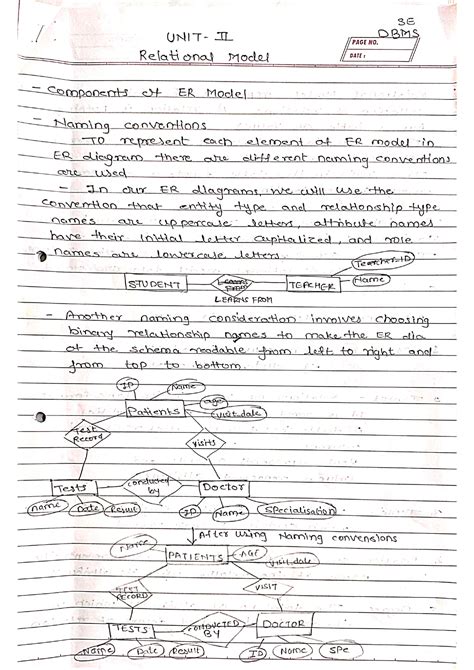 SE
DBMS
UNIT - II
PAGE NO.
DATE :
Relational Model
- Components of ER Model
- Naming conventions
To represent each element of ER model in
ER diagram there are different naming conventions
are used
- In our ER diagrams, we will use the
convention that entity type and relationship type
names are uppercase letters, attribute names
have their initial letter capitalized, and role
names are lowercase letters.
Teacher-ID
STUDENT
TEACHER
Name
LEARNS FROM
- Another naming consideration involves choosing
binary relationship names to make the ER dia
of the schema readable from left to right and
from top to bottom.
ID
Name
age
Patients
visit.date
Test
Record
visits
Tests
conducted
by
Doctor
Name
Date
Result
ID
Name
Specialisation
After using Naming convensions
Name
PATIENTS
AGE
visit.date
TEST
RECORD
VISIT
TESTS
CONDUCTED
BY
DOCTOR
Name
Date
Result
ID
Name
Spe